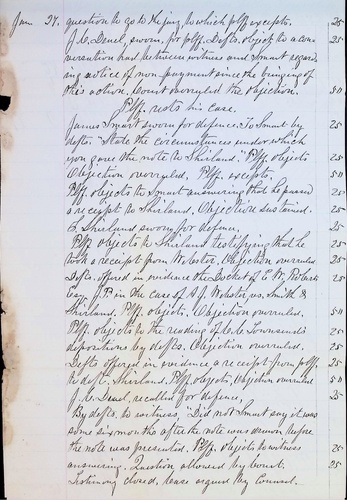 Jan 27. question to go to the jury to which plff excepts. 25
J. C. Deuel, sworn, for plff. Defts. object to a con- 25
versation had between witness and Smart regard-
ing notice of non payment since the bringing of
this action, Court overruled the objection. 50
Plff. rests his case.
James Smart sworn for defence. To Smart by 25
defts. "State the circumstances under which
you gave the note to Shirland." Plff. objects 25
Objection overruled, Plff. excepts. 50
Plff. objects to Smart answering that he passed 25
a receipt to Shirland. Objection sustained. 25
E. Shirland sworn for defence. 25
Plff. objects to Shirland testifying that he 25
took a receipt from Webster, Objection overruled 25
Defts. offered in evidence the Docket of E. W. Roberts 25
Esq. J.P. in the case of A. J. Webster, vs. Smith &
Shirland. Plff. objects. Objection overruled. 50
Plff. objects to the reading of C. C. Townsend's 25
depositions by defts. Objection overruled. 25
Defts offered in evidence a receipt from plff. 25
to deft. Shirland. Plff. objects, Objection overruled 50
J. C. Deuel, recalled for defence. 25
By defts. to witness, "Did not Smart say it was
some six months after the note was drawn, before
the note was presented. Plff. objects to witness 25
answering. Question allowed by Court. 25
Testimony closed, cause argued by counsel.